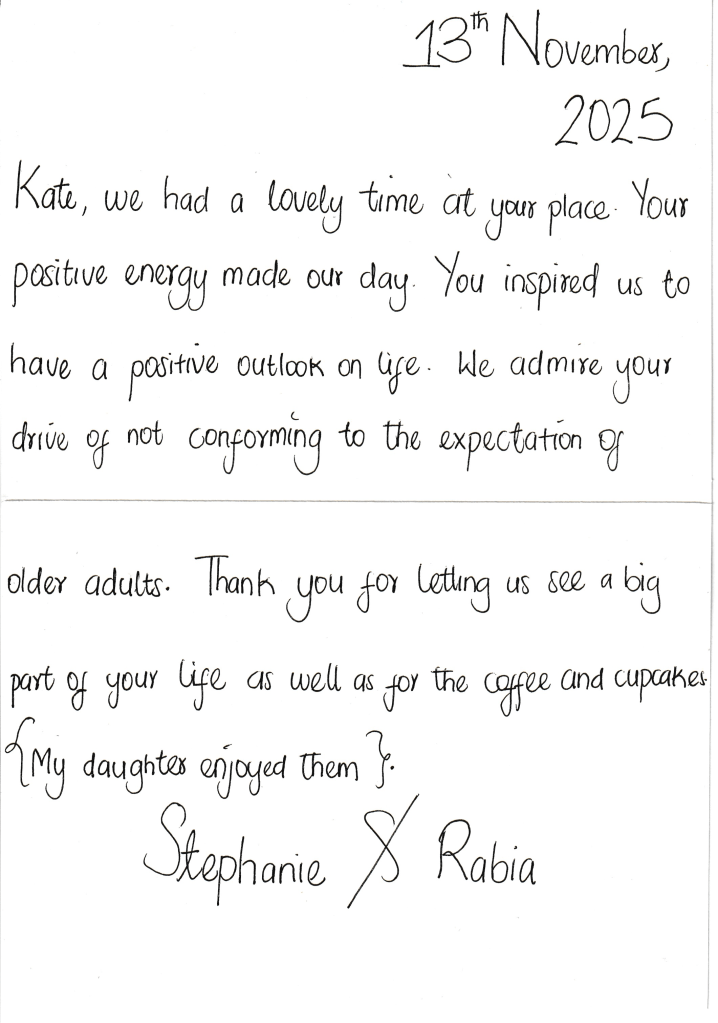 13th November,
2025
Kate, we had a lovely time at your place. Your
positive energy made our day. You inspired us to
have a positive outlook on life. We admire your
drive of not conforming to the expectation of
older adults. Thank you for letting us see a big
part of your life as well as for the coffee and cupcakes
{My daughter enjoyed them}.
Stephanie & Rabia